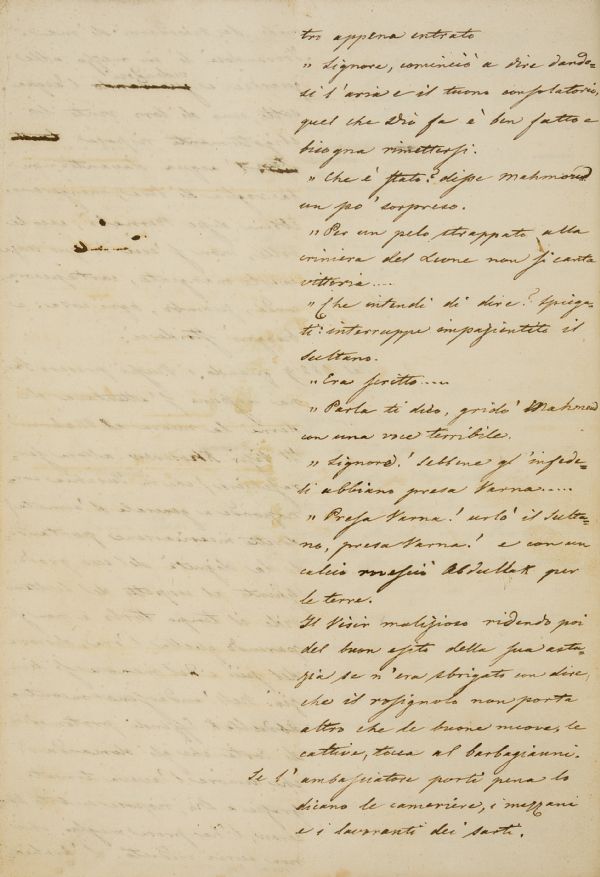 tro appena entrato
" Signore, cominciò a dire dando=
si l'aria e il tuono consolatorio,
quel che Dio fa è ben fatto e
bisogna rimettersi.
" Che è stato? disse Mahmoud
un po' sorpreso.
" Per un pelo strappato alla
criniera del Leone non si canta
vittoria....
" Che intendi di dire? spiega=
ti: interruppe impazientito il
Sultano.
" Era scritto.....
" Parla ti dico, gridò Mahmoud
con una voce terribile.
" Signore! Sebbene gl'infede=
li abbiano presa Varna.....
" Presa Varna! urlò il Sulta=
no, presa Varna! e con un
calcio Abdullak per
le terre.
Il Visir malizioso ridendo poi
del buon esito della sua astu=
zia se n'era sbrigato con dire,
che il rosignolo non porta
altro che le buone nuove, le
cattive, tocca al barbagianni.
Se l'ambasciatore porti pena lo
dicano le cameriere, i mezzani
e i lavoranti dei sarti.